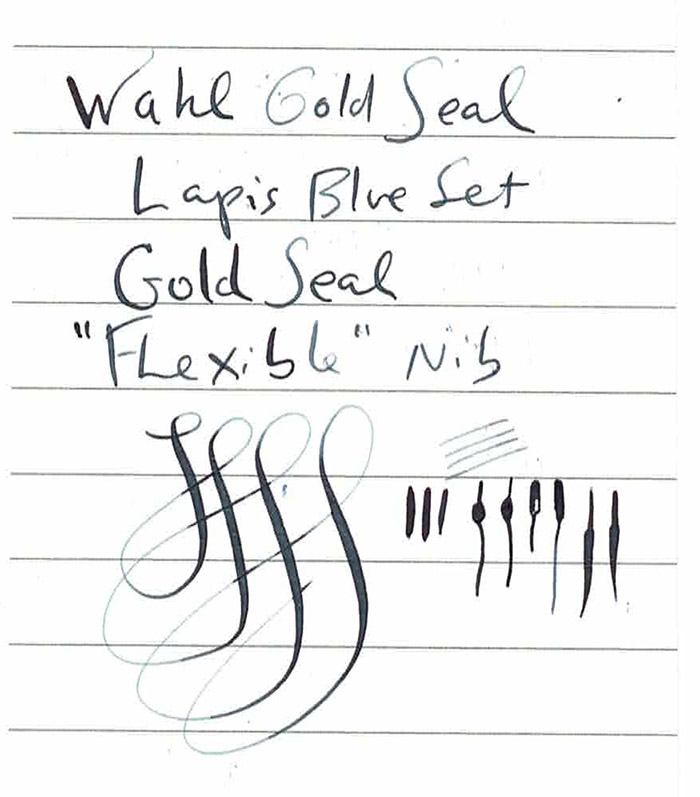 Wahl Gold Seal
Lapis Blue Set
Gold Seal
"Flexible" Nib